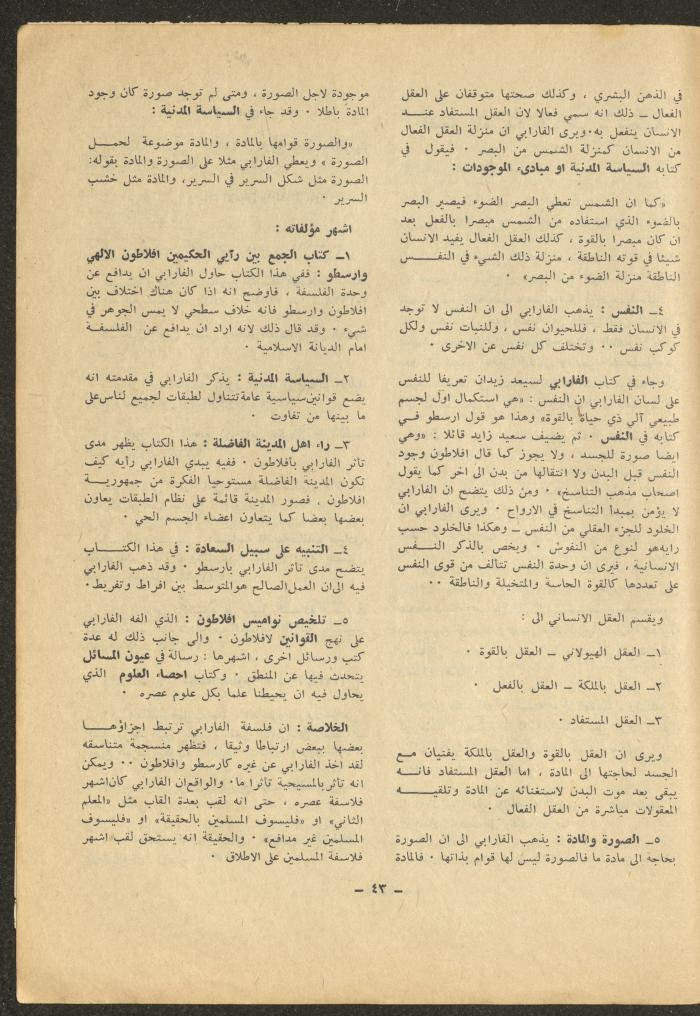 في الذهن البشري ، وكذلك صحتها متوقفان على العقل
الفعال ــ ذلك انه سمي فعالا لان العقل المستفاد عنــد
الانسان ينفعل به٠ويرى الفارابي ان منزلة العقل الفعال
من الانسان كمنزلة الشمس من البصر ٠ فيقول في
كتابه السياسة المدنية او مبادىء الموجودات :
«كما ان الشمس تعطي البصر الضوء فيصير البصر
بالضوء الذي استفاده من الشمس مبصرا بالفعل بعد
ان كان مبصرا بالقوة ، كذلك العقل الفعال يفيد الانسان
شيئا في قوته الناطقة ، منزلة ذلك الشيء في النفــس
الناطقة منزلة الضوء من البصر» ٠
٤ــ النفس : يذهب الفارابي الى ان النفس لا توجد
في الانسان فقط ، فللحيوان نفس ، وللنبات نفس ولكل
كوكب نفس ٠٠ وتختلف كل نفس عن الاخرى ٠
وجاء في كتاب الفارابي لسيعد زيدان تعريفا للنفس
على لسان الفارابي ان النفس : «هي استكمال اول لجسم
طبيعي آلي ذي حياة بالقوة» وهذا هو قول ارسطو فــي
كتابه في النفس ٠ ثم يضيف سعيد زايد قائلا : «وهي
ايضا صورة للجسد ، ولا يجوز كما قال افلاطون وجود
النفس قبل البدن ولا انتقالها من بدن الى اخر كما يقول
اصحاب مذهب التناسخ» ٠ ومن ذلك يتضح ان الفارابي
لا يؤمن بمبدأ التناسخ في الارواح ٠ ويرى الفارابي ان
الخلود للجزء العقلي من النفس ــ وهكذا فالخلود حسب
رايههو لنوع من النفوش ٠ ويخص بالذكر النــفس
الانسانية ، فيرى ان وحدة النفس تتالف من قوى النفس
على تعددها كالقوة الحاسة والمتخيلة والناطقة ٠٠
ويقسم العقل الانساني الى :
١ــ العقل الهيولاني ــ العقل بالقوة ٠
٢ــ العقل بالملكة ــ العقل بالفعل ٠
٣ــ العقل المستفاد ٠
ويرى ان العقل بالقوة والعقل بالملكة يفنيان مــع
الجسد لحاجتها الى المادة ، اما العقل المستفاد فانــه
يبقى بعد موت البدن لاستغنائه عن المادة وتلقيــه
المعقولات مباشرة من العقل الفعال ٠
٥ــ الصورة والمادة : يذهب الفارابي الى ان الصورة
بحاجه الى مادة ما فالصورة ليس لها قوام بذاتها ٠ فالمادة
موجودة لاجل الصورة ، ومتى لم توجد صورة كان وجود
المادة باطلا ٠ وقد جاء في السياسة المدنية :
«والصورة قوامها بالمادة ، والمادة موضوعة لحمــل
الصورة » ويعطي الفارابي مثلا على الصورة والمادة بقوله:
الصورة مثل شكل السرير في السرير، والمادة مثل خشب
السرير ٠
اشهر مؤلفاته :
١ــ كتاب الجمع بين رآيي الحكيمين افلاطون الالهي
وارسطو : ففي هذا الكتاب حاول الفارابي ان يدافع عن
وحدة الفلسفة ، فاوضح انه اذا كان هناك اختلاف بين
افلاطون وارسطو فانه خلاف سطحي لا يمس الجوهر في
شيء ٠ وقد قال ذلك لانه اراد ان يدافع عن الفلسفــة
امام الديانة الاسلامية ٠
٢ــ السياسة المدنية : يذكر الفارابي في مقدمته انه
يضع قوانين سياسية عامة تتناول لطبقات لجميع لناس على
ما بينها من تفاوت ٠
٣ــ راء اهل المدينة الفاضلة : هذا الكتاب يظهر مدى
تأثر الفارابي بأفلاطون ٠ ففيه يبدي الفارابي رأيه كيف
تكون المدينة الفاضلة مستوحيا الفكرة من جمهوريــة
افلاطون ٠ فصور المدينة قائمة على نظام الطبقات يعاون
بعضها بعضا كما يتعاون اعضاء الجسم الحي ٠
٤ــ التنبيه على سبيل السعادة : في هذا الكتــاب
يتضح مدى تاثر الفارابي بارسطو ٠ وقد ذهب الفارابي
فيه الى ان العمل الصالح هو المتوسط بين افراط وتفريط٠
٥ــ تلخيص نواميس افلاطون : الذي الفه الفارابي
على نهج القوانين لافلاطون ٠ والى جانب ذلك له عدة
كتب ورسائل اخرى ، اشهرها : رسالة في عيون المسائل
يتحدث فيها عن المنطق ٠ وكتاب احصاء العلوم الذي
يحاول فيه ان يحيطنا علما بكل علوم عصره ٠
الخلاصة : ان فلسفة الفارابي ترتبط اجزاؤهــا
بعضها ببعض ارتباطا وثيقا ، فتظهر منسجمة متناسقه
لقد اخذ الفارابي عن غيره كارسطو وافلاطون ٠٠ ويمكن
انه تأثر بالمسيحية تأثرا ما٠ والواقع ان الفارابي كان اشهر
فلاسفة عصره ، حتى انه لقب بعدة القاب مثل «المعلم
الثاني» او «فليسوف المسلمين بالحقيقة» او «فليسوف
المسلمين غير مدافع» ٠ والحقيقة انه يستحق لقب اشهر
فلاسفة المسلمين على الاطلاق ٠
ــ ٤٣ ــ